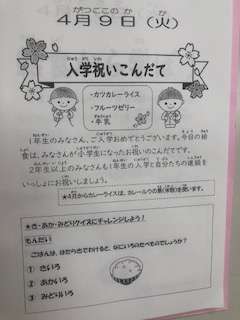 4月9日（火）
入学祝いこんだて
・カツカレーライス
・フルーツゼリー
・牛乳
1年生のみなさん、ご入学おめでとうございます。今日の給
食は、みなさんが小学生になったお祝いのこんだてです。
2年生以上のみなさんも1年生の入学と自分たちの進級を
いっしょにお祝いしましょう。
★4月からカレーライスは、カレールウの量を調整します。
★き・あか・みどりクイズにチャレンジしよう！
もんだい
ごはんは、はたらきでわけると、なにいろのたべものでしょうか？
① きいろ
② あかいろ
③ みどりいろ